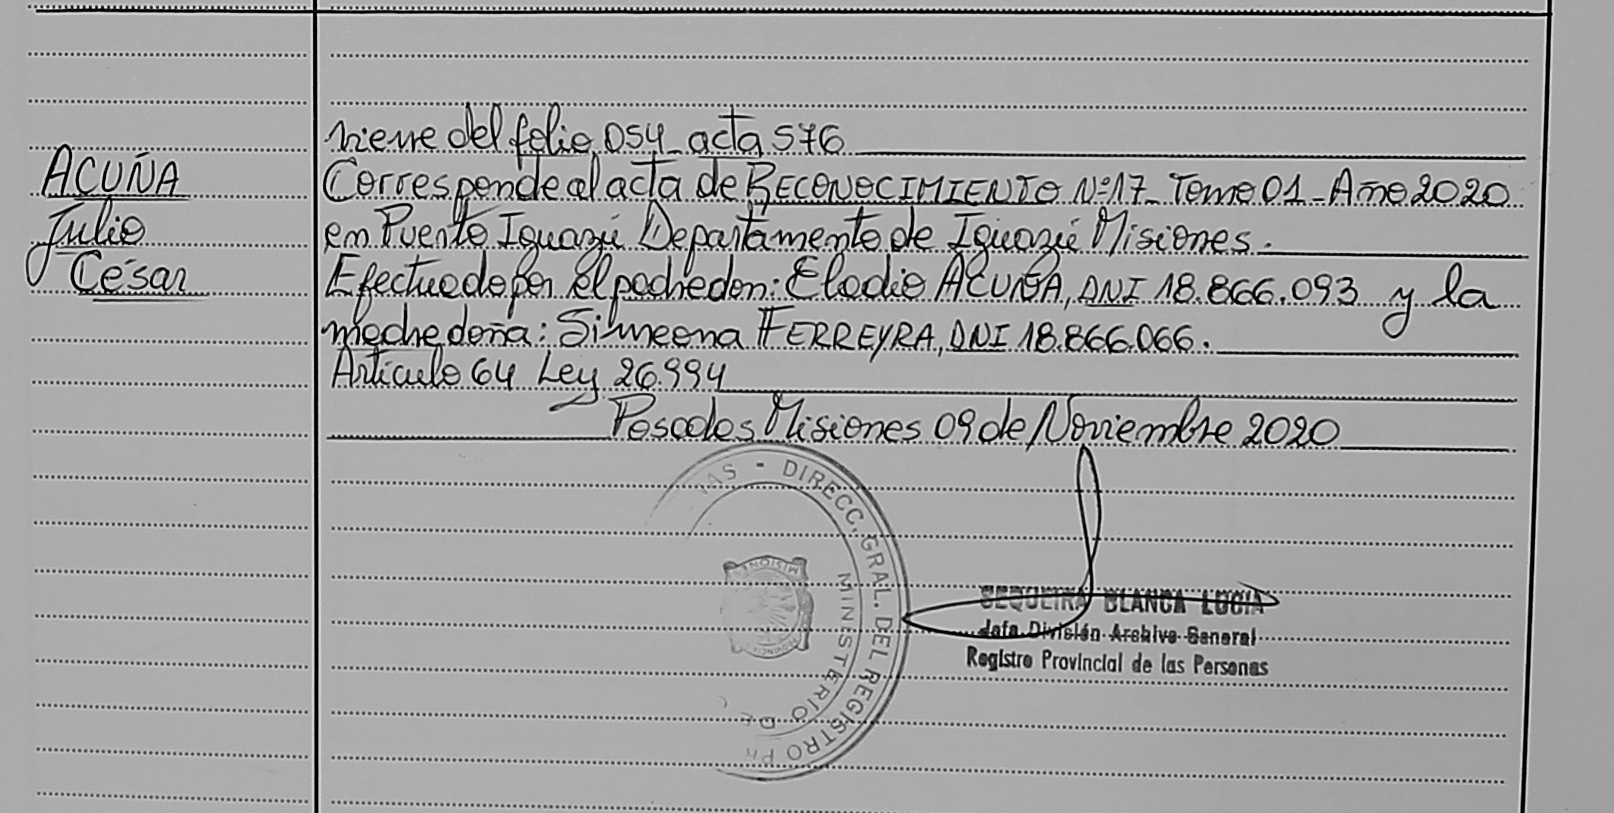 viene del folio 054 acta 576
ACUÑA
Julio
César
Corresponde al acta de RECONOCIMIENTO Nº17_ Tomo 01_ Año 2020
en Puerto Iguazú Departamento de Iguazú Misiones.
Efectuado por el padre don: Eladio ACUÑA, DNI 18.866.093 y la
madre doña: Simeona FERREYRA, DNI 18.866.066.
Artículo 64 Ley 26.994
Posadas Misiones 09 de Noviembre 2020
DIRECC. GRAL. DEL REGISTRO
MINISTERIO DE
SEQUEIRA BLANCA LUCIA
Jefa División Archivo General
Registro Provincial de las Personas